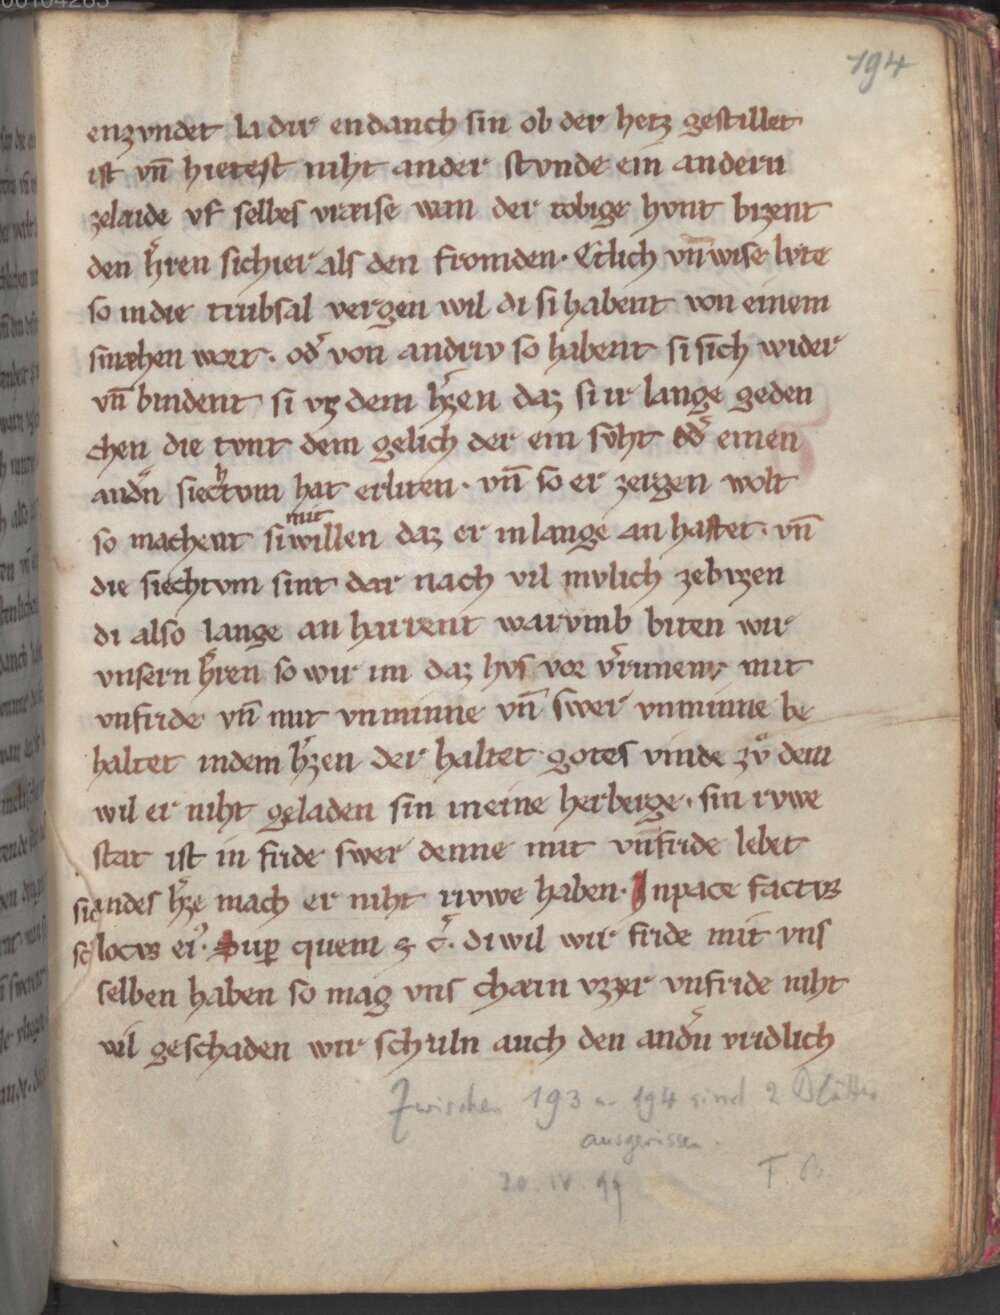 00104265
194
enzvndet la dir endanch sin ob der herz gestillet
ist vn̄ hietest niht ander stvnde ein andern
zelaide vf selbes vraise wan der tobige hvnt bizent
den h̄ren sichier als den fromden. Etlich vn̄wise lvte
so in die trubsal vergen wil di si habent von einem
smæhen wort. od̄ von andriv so habent si sich wider
vn̄ bindent si vz dem h̄zen daz si ir lange geden
chen die tvnt dem gelich der ein suht od̄ einen
and̄n siechtvm hat erliten. vn̄ so er zeigen wolt
so machent si mit willen daz er in lange an haftet. vn̄
die siechtvm sint dar nach vil mvlich zebvzen
di also lange an harrent warvmb biten wir
vnsern h̄ren so wir im daz hvs vor v̄rumen mit
vnfride vn̄ mit vnminne vn̄ swer vnminne be
haltet indem h̄zen der haltet gotes vinde zů dem
wil er niht geladen sin in eine herberge. sin rvwe
stat ist in fride swer denne mit vnfride lebet
in des h̄ze mach er niht rvwe haben. Inpace factvs
locvs ei᾽. Sup̱ quem ⁊ c̄. diwil wir fride mit vns
selben haben so mag vns chæin vzzer vnfride niht
vil geschaden wir schuln auch den and̄n vridlich
Zwischen 193 u. 194 sind 2 Blätter
ausgerissen.
T. B.